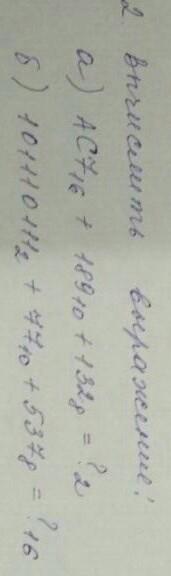 2. Вычислить выражение:
а) 1C7₁₆ + 189₁₀ + 132₈ = ?₂
б) 10111011₂ + 77₁₀ + 537₈ = ?₁₆